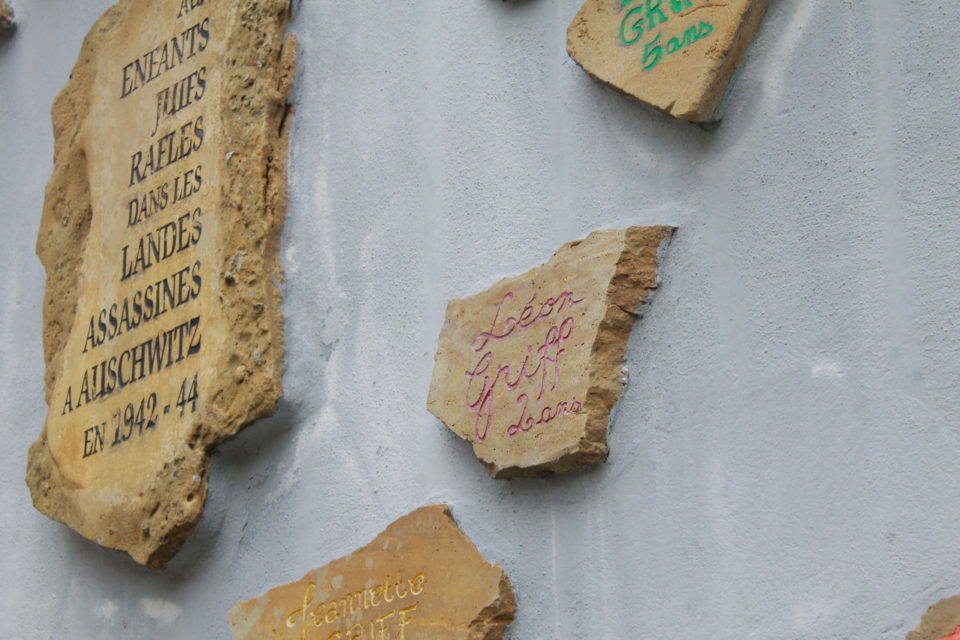 AUX
ENFANTS
JUIFS
RAFLES
DANS LES
LANDES
ASSASSINES
A AUSCHWITZ
EN 1942 - 44
5 ans
Léon
Griff
2 ans
Jeannette
GRIFF